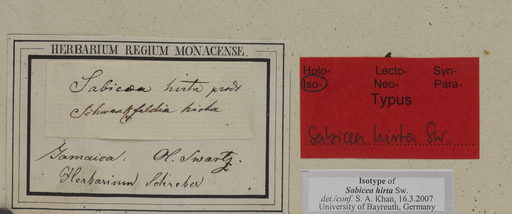 HERBARIUM REGIUM MONACENSE.
Sabicea hirta prodr
Schwenkfeldia hirta
Jamaica. O. Swartz.
Herbarium Schreber
Holo- Lecto- Syn-
Iso- Neo- Para-
Typus
Sabicea hirta Sw.
Isotype of
Sabicea hirta Sw.
det./conf. S. A. Khan, 16.3.2007
University of Bayreuth, Germany